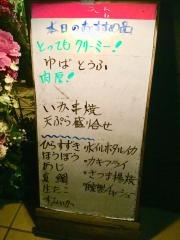 本日のおすすめ品
とってもクリーミー!
ゆばとうふ
肉厚!
いか串焼
天ぷら盛合せ
ひらすずき
ほうぼう
めじ
真鯛
生たこ
すみいか
・ボイルホタルイカ
・カキフライ
・さつま揚